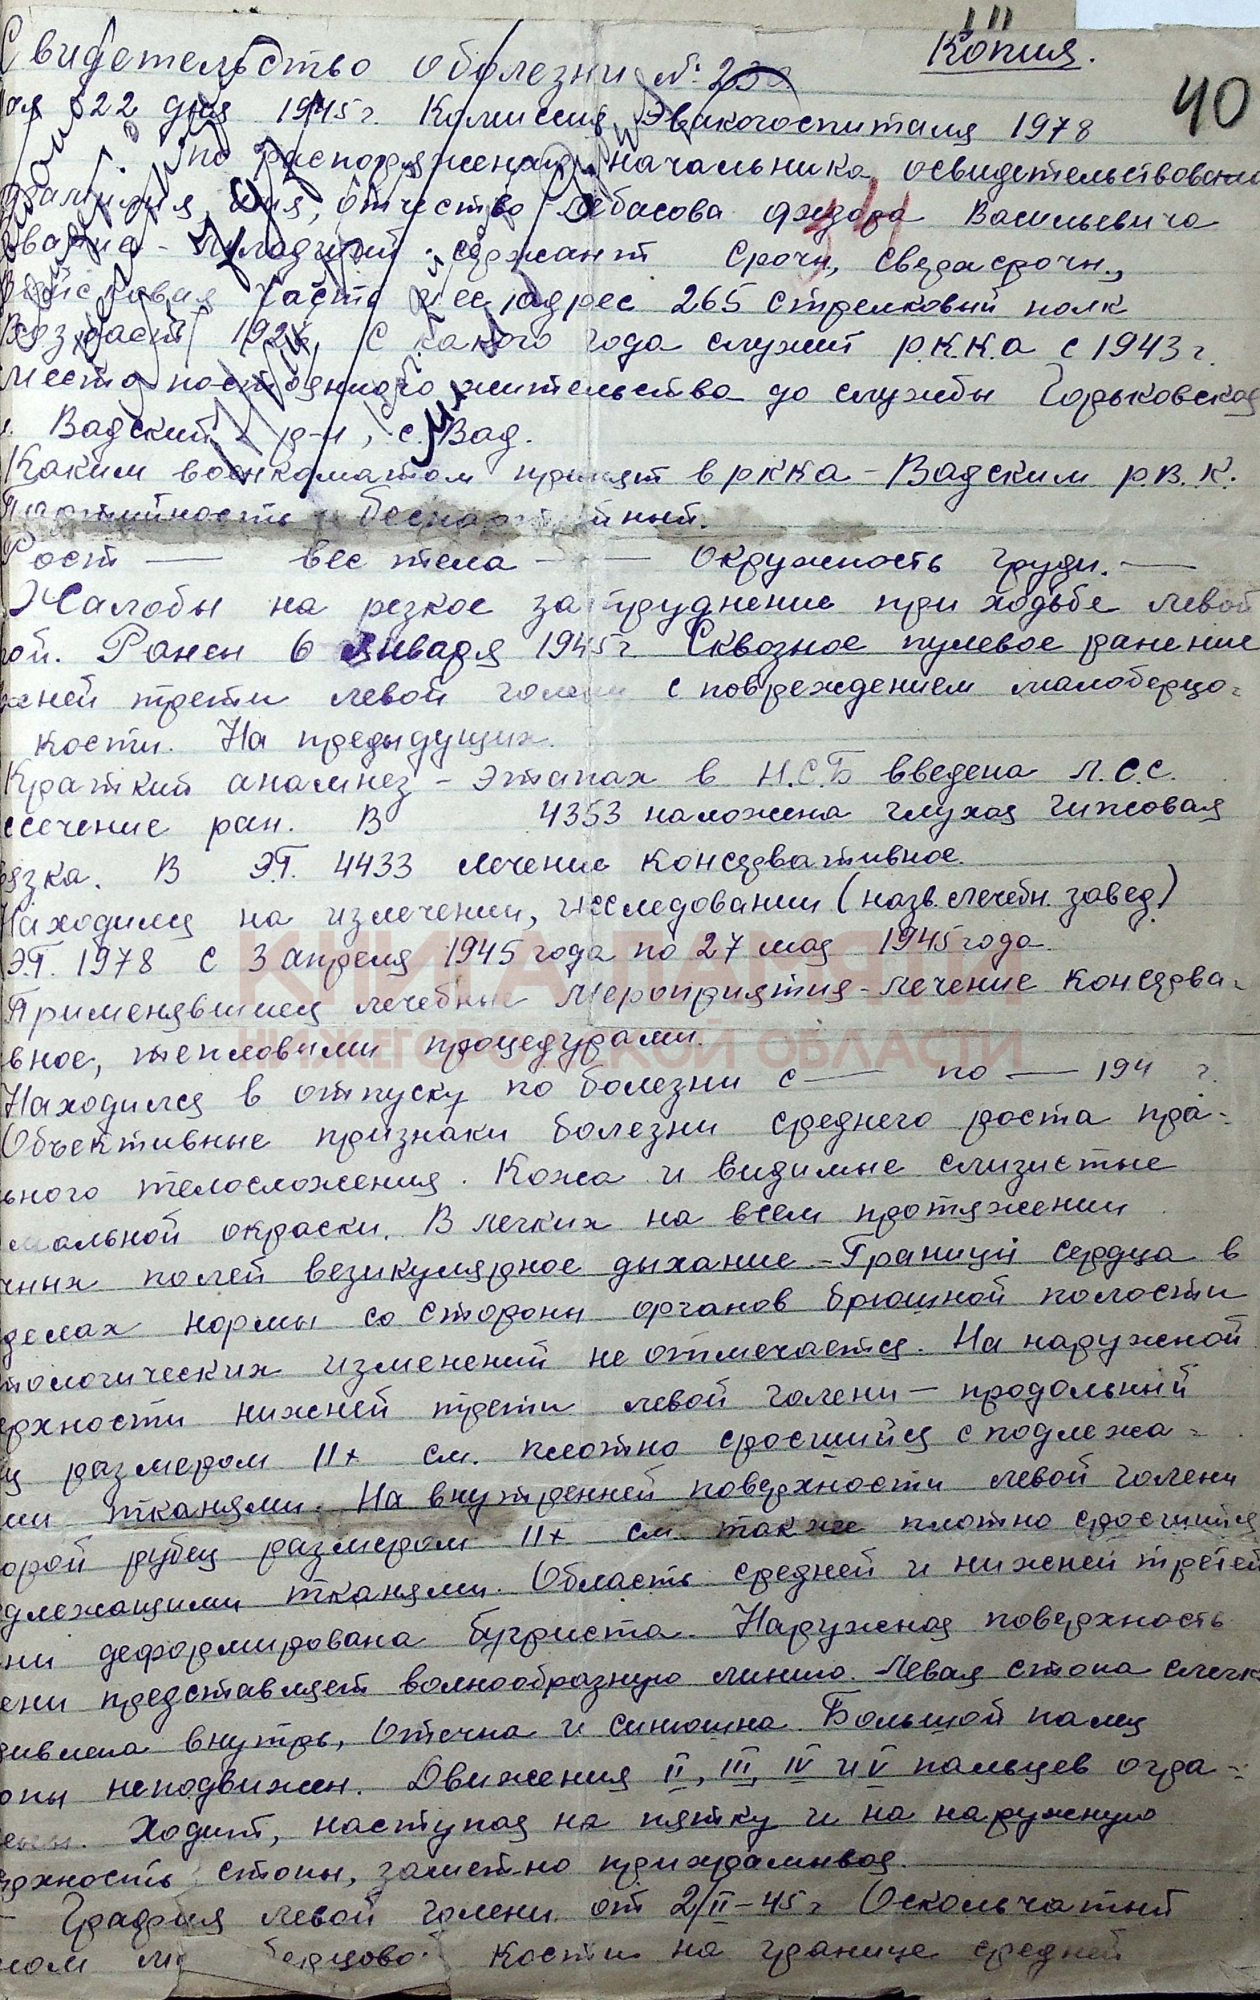 Копия.
40
Свидетельство о болезни №
мая 22 дня 1945 г. Комиссия Эвакогоспиталя 1978
по распоряжению начальника освидетельствовала
фамилия, имя, отчество Васильевича
звание - младший сержант срочн, сверхсрочн.,
Войсковая часть и ее адрес 265 стрелковый полк
Возраст С какого года служит р.к.к.а с 1943 г.
Место постоянного жительства до службы Горьковская
Вадский р-н, с. Вад.
Каким военкоматом принят в рккa - Вадским р.в.к.
Партийность беспартийный.
Рост — вес тела — — окружность груди. —
Жалобы на резкое затруднение при ходьбе левой
ой. Ранен 6 января 1945 г Сквозное пулевое ранение
жней трети левой голени с повреждением малоберцо-
кости. На предыдущих.
Краткий анамнез - этапах в М.С.Б введена Л.С.С.
ссечение ран. В 4353 наложена глухая гипсовая
вязка. В Э.Г. 4433 лечение консервативное.
Находился на излечении, исследовании (назв. лечебн. завед.)
Э.Г. 1978 с 3 апреля 1945 года по 27 мая 1945 года.
КНИГА ПАМЯТИ
Применявшиеся лечебные мероприятия - лечение консерва-
вное, тепловыми процедурами.
НИЖЕГОРОДСКОЙ ОБЛАСТИ
Находился в отпуску по болезни с — по — 194 г.
Объективные признаки болезни среднего роста пра-
ьного телосложения. Кожа и видимые слизистые
мальной окраски. В легких на всем протяжении
чных полей везикулярное дыхание - Границы сердца в
делах нормы со стороны органов брюшной полости
тологических изменений не отмечается. На наружной
ерхности нижней трети левой голени - продольный
ц размером 11х см. плотно сросшийся с подлежа-
ми тканями. На внутренней поверхности левой голени
орой рубец размером 11х см. также плотно сросшийся
одлежащими тканями. Область средней и нижней третей
ни деформирована бугриста. Наружная поверхность
ени представляет волнообразную линию. Левая стопа слегк
внутрь, отечна и синюшна. Большой палец
опы неподвижен. Движения II, III, IV и V пальцев огра-
ены. Ходит, наступая на пятку и на наружную
рхность стопы, заметно прихрамывая.
- Графия левой голени от 2/II-45 г Оскольчатый
лом берцовой кости на границе средней